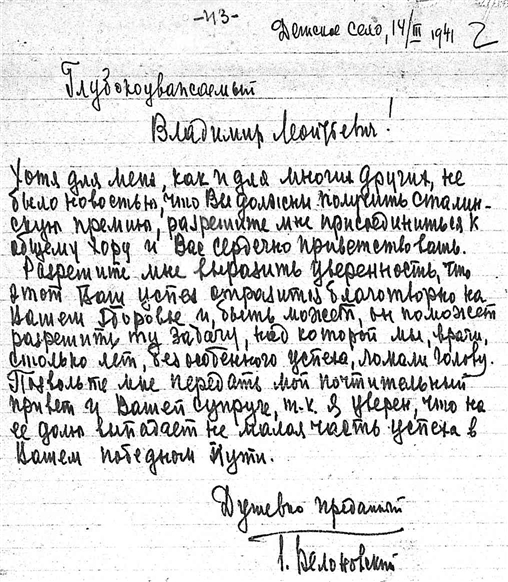 -43-
Детское село, 14/III 1941 2
Глубокоуважаемый
Владимир Леонтьевич!
Хотя для меня, как и для многих других, не
было новостью, что Вы должны получить Сталин-
скую премию, разрешите мне присоединиться к
общему хору и Вас сердечно приветствовать.
Разрешите мне выразить уверенность, что
этот Ваш успех отразится благотворно на
Вашем здоровье и, быть может, он поможет
разрешить ту задачу, над которой мы, врачи,
столько лет, без особенного успеха, ломали голову.
Позвольте мне передать мой почтительный
привет и Вашей супруге, т.к. я уверен, что на
ее долю выпадает не малая часть успеха в
Вашем победном пути.
Душевно преданный
Г. Белоновский